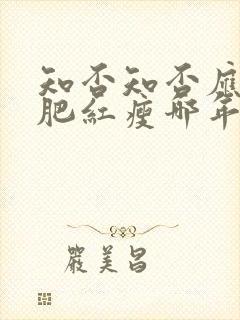 知否知否應
肥紅瘦那年
嚴美昌